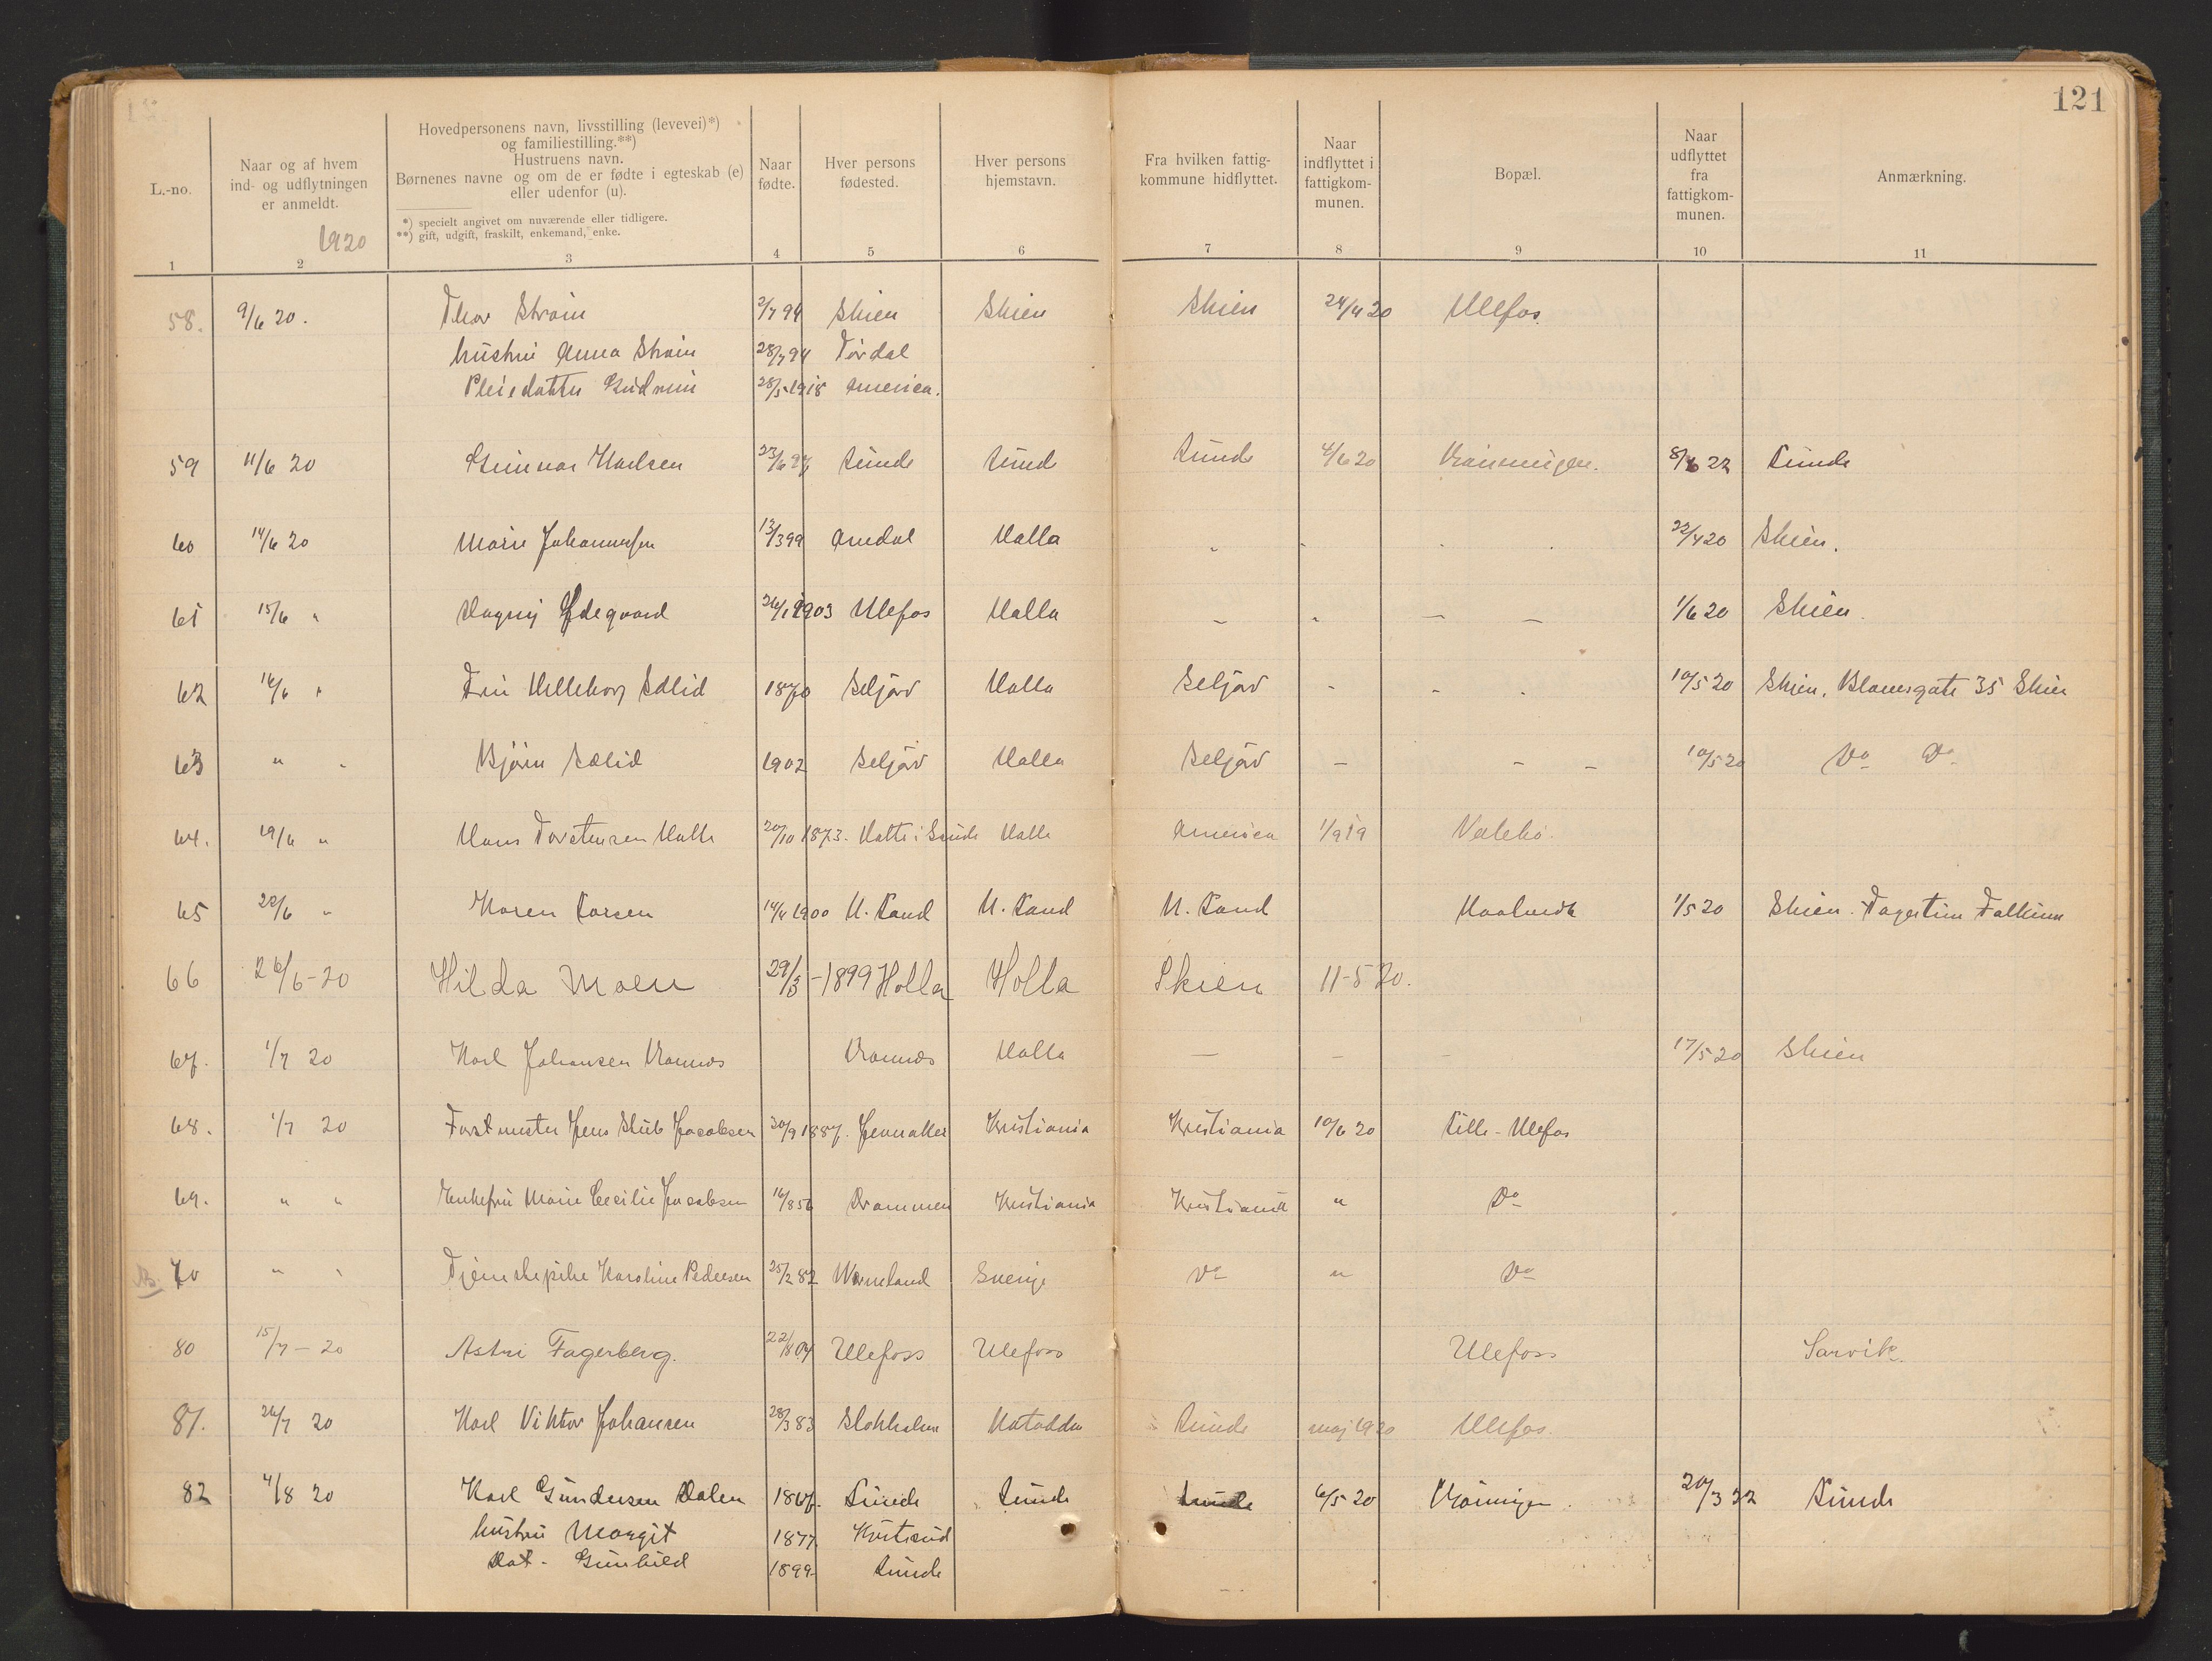 121
L.-no.
Naar og af hvem ind- og udflytningen er anmeldt.
1920
Hovedpersonens navn, livsstilling (levevei)*) og familiestilling.**)
Hustruens navn.
Børnenes navne og om de er fødte i egteskab (e) eller udenfor (u).
*) specielt angivet om nuværende eller tidligere.
**) gift, udgift, fraskilt, enkemand, enke.
Naar fødte.
Hver persons fødested.
Hver persons hjemstavn.
Fra hvilken fattigkommune hidflyttet.
Naar indflyttet i fattigkommunen.
Bopæl.
Naar udflyttet fra fattigkommunen.
Anmærkning.
1 2 3 4 5 6 7 8 9 10 11
58. 9/6 20. Thor Strøm 2/7 94 Skien Skien Skien 24/4 20 Ulefos.
hustru Anna Strøm 28/7 94 Tørdal
Pleiedatter Gudrun 28/5 1918 America.
59 11/6 20 Gunnar Karlsen 23/6 97 Lunde Lunde Lunde 4/6 20 8/6 22 Lunde
60 14/6 20 Marie Johannesen 13/3 99 Holla 22/4 20 Skien.
61 15/6 " Dagny Ødegaard 1903 Ulefos Holla — " — — 1/6 20 Skien.
62 16/6 " Selid 1870 Seljord Holla Seljord - - - 10/5 20 Skien, 35 Skien
63 " " Bjørn Selid 1902 Seljord Holla Seljord — — — 10/5 20 Do Do
64. 19/6 " Hans Torstensen 20/10 1873. America 1/9 19
65 22/6 " Karen Larsen 14/4 1900 1/5 20 Skien.
66 26/6-20 Hilda Moen 29/3-1899 Holla Holla Skien 11-5 20.
67. 1/7 20 Karl Johansen Holla — — — 17/5 20 Skien
68. 1/7 20 Forstmester Jens Jacobsen 30/9 1887. Jevnaker Kristiania Kristiania 10/6 20 Lille-Ulefos
69. " " Enkefru Marie Cecilie Jacobsen 16/8 56 Drammen Kristiania Kristiania " Do
70 " " Tjenestepike Karoline Pedersen 25/2 82 Wermland Sverige Do " Do
80 15/7-20 Astri Fagerberg. 22/8 04 Ulefoss Ulefoss Ulefoss Larvik.
81. 26/7 20 Karl Viktor Johansen 28/3 83 Stokholm Lunde maj 1920 Ulefos.
82 4/8 20 Karl Gundersen Dalen 1867. Lunde Lunde Lunde 6/5 20 20/3 22 Lunde
hustru Margit 1877.
Dat. Gunhild 1899. Lunde